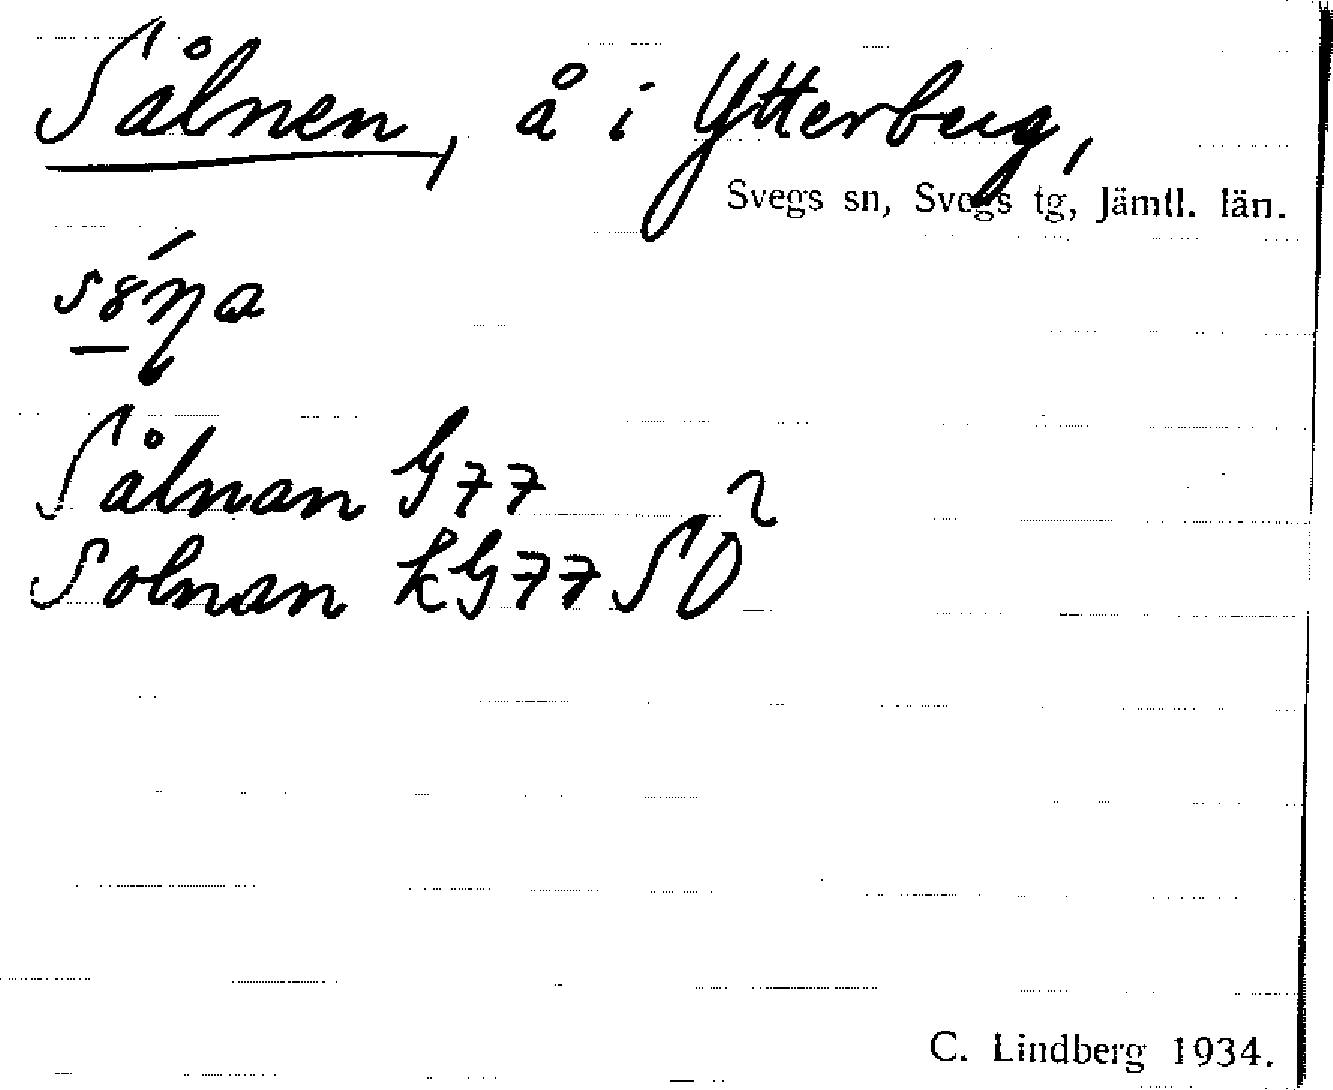 Sålnen, å i Ytterberg,
Svegs sn, Svegs tg, Jämtl. län.
Sålnan G77
Solnan kG77 SO
C. Lindberg 1934.